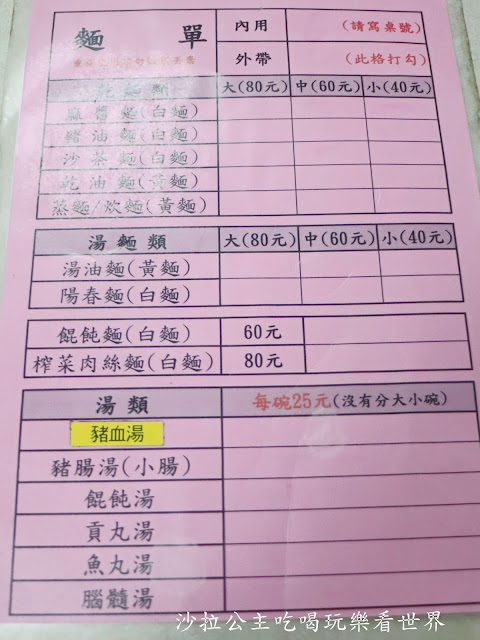 麵 單
內用 (請寫桌號)
外帶 (此格打勾)
乾麵類 大(80元) 中(60元) 小(40元)
麻醬麵(白麵)
豬油麵(白麵)
沙茶麵(白麵)
乾油麵(黃麵)
蒸麵/炊麵(黃麵)
湯麵類 大(80元) 中(60元) 小(40元)
湯油麵(黃麵)
陽春麵(白麵)
餛飩麵(白麵) 60元
榨菜肉絲麵(白麵) 80元
湯類 每碗25元(沒有分大小碗)
豬血湯
豬腸湯(小腸)
餛飩湯
貢丸湯
魚丸湯
腦髓湯
沙拉公主吃喝玩樂看世界